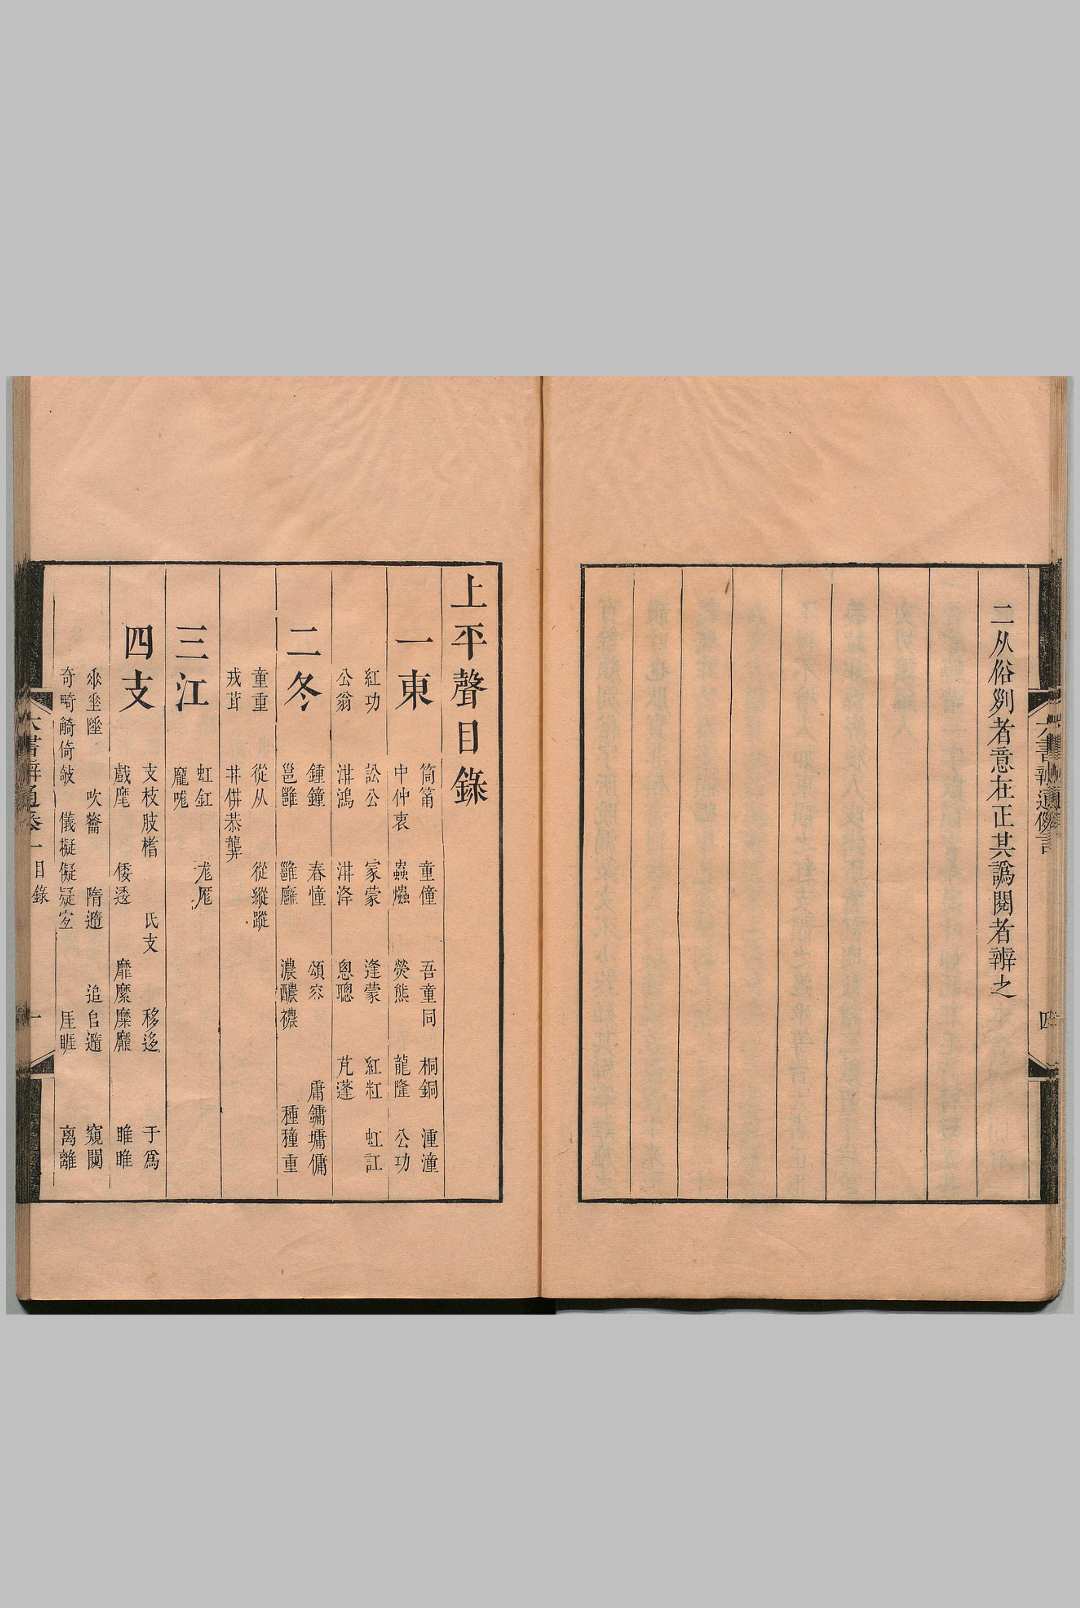 二从俗剜者意在正其譌閱者辨之
六書辨通例言
四
上平聲目錄
一東
筒筩　童僮　吾童同　桐銅　湩潼
中仲衷　蟲爞　熒熊　龍隆　公功
紅功　訟公　家蒙　逢蒙　紅紅　虹訌
公翁　洪鴻　洪洚　悤聰　芃蓬
二冬
鍾鐘　舂憧　頌容　庸鏞墉傭
邕雝　雝廱　濃醲襛　種穜重
童重　從从　從縱蹤
戎茸　共供恭龔
三江
虹釭　尨厖
龐哤
四支
支枝肢楮　氏支　移迻　于為
戲麾　倭逶　靡縻糜　睢睢
垂陲　吹龡　隋遁　追　窺闚
奇畸觭倚攲　儀擬儗疑宐　厓睚　离離
六書辨通卷一目錄
一